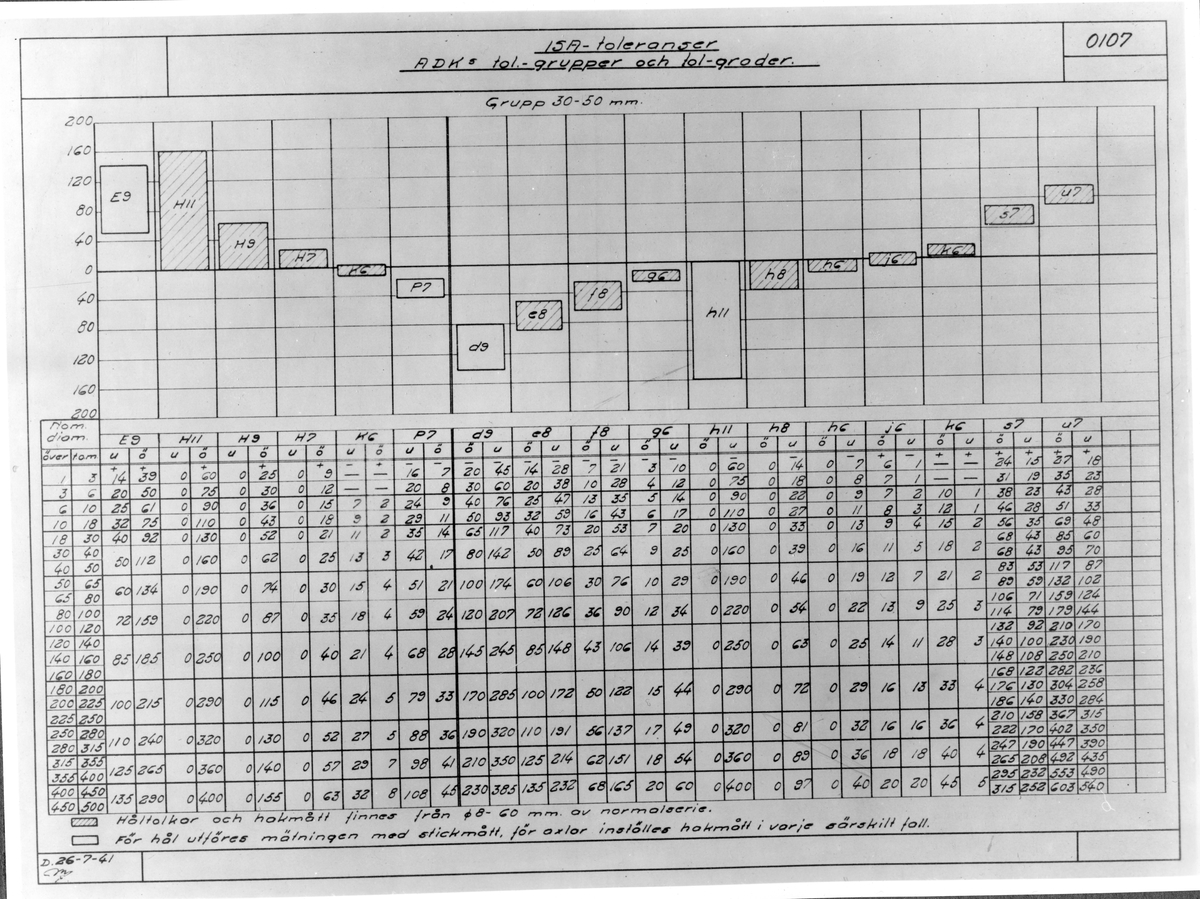 ISA-toleranser
ADKs tol.-grupper och tol-grader.
0107
Grupp 30-50 mm.
200
160
120
80
40
0
40
80
120
160
200
E9 H11 H9 H7 K6 P7 d9 e8 f8 g6 h11 h8 h6 j6 k6 s7 u7
Nom. diam. E9 H11 H9 H7 K6 P7 d9 e8 f8 g6 h11 h8 h6 j6 k6 s7 u7
över tom u ö u ö u ö u ö u ö u ö ö u ö u ö u ö u ö u ö u ö u ö u ö u ö u ö u
+ + + + + - - - - - - - - - - - - - - - + - + + + + + +
1 3 14 39 0 60 0 25 0 9 — — 16 7 20 45 14 28 7 21 3 10 0 60 0 14 0 7 6 1 — — 24 15 27 18
3 6 20 50 0 75 0 30 0 12 — — 20 8 30 60 20 38 10 28 4 12 0 75 0 18 0 8 7 1 — — 31 19 35 23
6 10 25 61 0 90 0 36 0 15 7 2 24 9 40 76 25 47 13 35 5 14 0 90 0 22 0 9 7 2 10 1 38 23 43 28
10 18 32 75 0 110 0 43 0 18 9 2 29 11 50 93 32 59 16 43 6 17 0 110 0 27 0 11 8 3 12 1 46 28 51 33
18 30 40 92 0 130 0 52 0 21 11 2 35 14 65 117 40 73 20 53 7 20 0 130 0 33 0 13 9 4 15 2 56 35 69 48
30 40 50 112 0 160 0 62 0 25 13 3 42 17 80 142 50 89 25 64 9 25 0 160 0 39 0 16 11 5 18 2 68 43 85 60
40 50 68 43 95 70
50 65 60 134 0 190 0 74 0 30 15 4 51 21 100 174 60 106 30 76 10 29 0 190 0 46 0 19 12 7 21 2 83 53 117 87
65 80 89 59 132 102
80 100 72 159 0 220 0 87 0 35 18 4 59 24 120 207 72 126 36 90 12 34 0 220 0 54 0 22 13 9 25 3 106 71 159 124
100 120 114 79 179 144
120 140 132 92 210 170
140 160 85 185 0 250 0 100 0 40 21 4 68 28 145 245 85 148 43 106 14 39 0 250 0 63 0 25 14 11 28 3 140 100 230 190
160 180 148 108 250 210
180 200 168 122 282 236
200 225 100 215 0 290 0 115 0 46 24 5 79 33 170 285 100 172 50 122 15 44 0 290 0 72 0 29 16 13 33 4 176 130 304 258
225 250 186 140 330 284
250 280 110 240 0 320 0 130 0 52 27 5 88 36 190 320 110 191 56 137 17 49 0 320 0 81 0 32 16 16 36 4 210 158 367 315
280 315 222 170 402 350
315 355 125 265 0 360 0 140 0 57 29 7 98 41 210 350 125 214 62 151 18 54 0 360 0 89 0 36 18 18 40 4 247 190 447 390
355 400 265 208 492 435
400 450 135 290 0 400 0 155 0 63 32 8 108 45 230 385 135 232 68 165 20 60 0 400 0 97 0 40 20 20 45 5 295 232 553 490
450 500 315 252 603 540
Håltolkar och hakmått finnes från ø8-60 mm. av normalserie.
För hål utföres mätningen med stickmått, för axlar inställes hakmått i varje särskilt fall.
D. 26-7-41